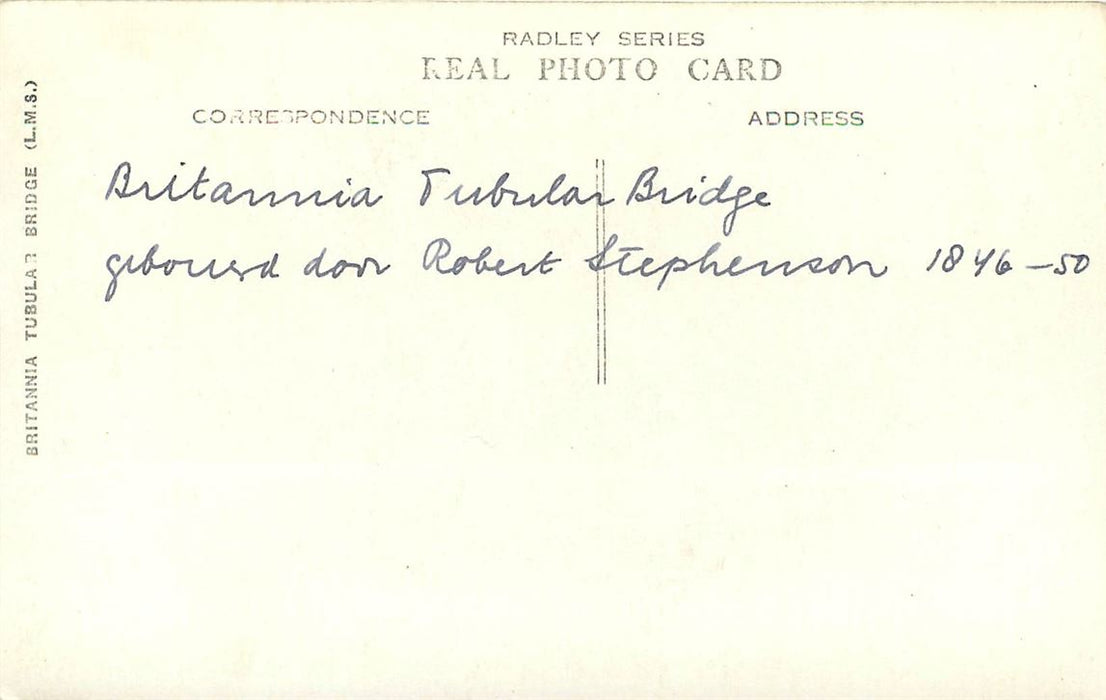 RADLEY SERIES
REAL PHOTO CARD
CORRESPONDENCE
ADDRESS
Britannia Tubular Bridge
gebouwd door Robert Stephenson 1846-50
BRITANNIA TUBULAR BRIDGE (L.M.S.)